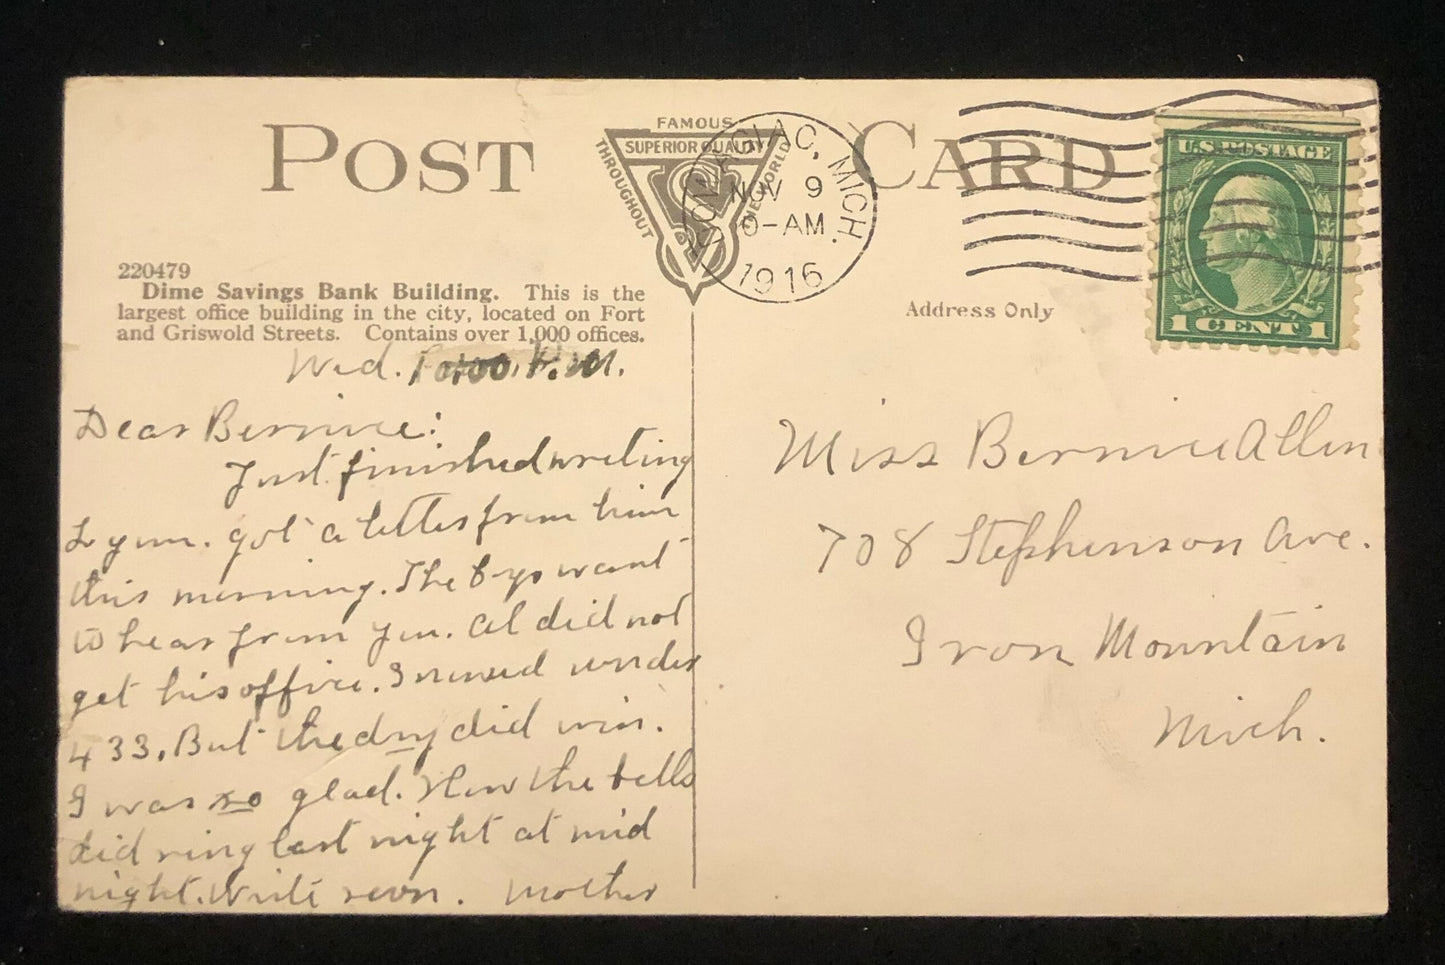 POST CARD
FAMOUS
SUPERIOR QUALITY
THROUGHOUT
THE WORLD
DOWAGIAC, MICH.
NOV 9
-AM
1916
U.S. POSTAGE
1 CENT 1
220479
Dime Savings Bank Building. This is the
largest office building in the city, located on Fort
and Griswold Streets. Contains over 1,000 offices.
Address Only
Wed. 10:00 A.M.
Dear Bernice:
Just finished writing
to you. got a letter from him
this morning. The boys want
to hear from you. Al did not
get his office. I mised under
433. But the dry did win.
I was so glad. How the bells
did ring last night at mid
night. Write soon. Mother
Miss Bernice Allen
708 Stephenson Ave.
Iron Mountain
Mich.